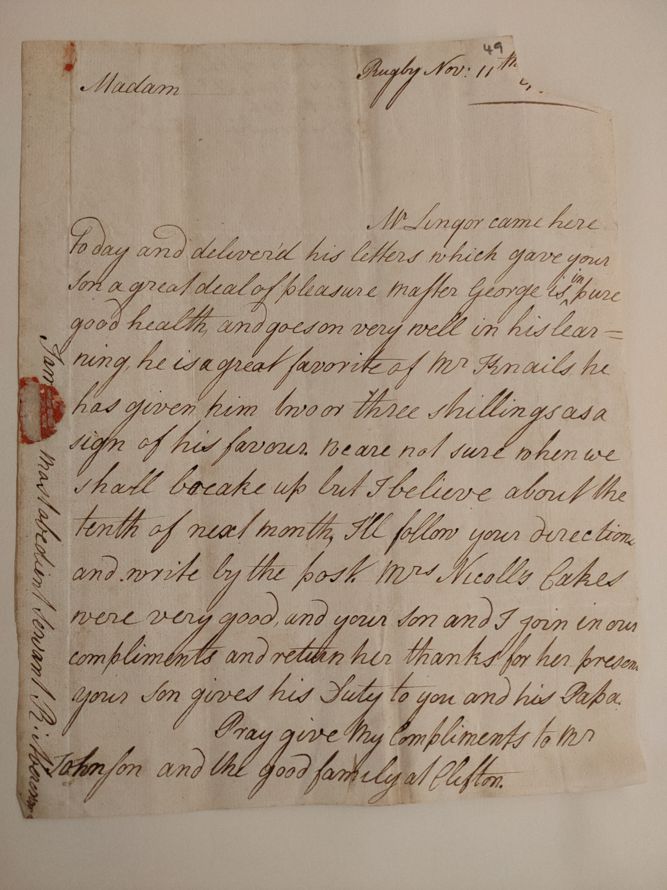 49
Rugby Nov: 11th
Madam
Mr Lingor came here
to day and deliver'd his letters which gave your
son a great deal of pleasure master George is in pure
good health, and goes on very well in his lear=
ning, he is a great favorite of Mr Knails he
has given him two or three shillings as a
sign of his favour. we are not sure when we
shall breake up but I believe about the
tenth of next month, I'll follow your direction
and write by the post. Mrs Nicolls Cakes
were very good, and your son and I join in our
compliments and return her thanks for her presen
your son gives his Duty to you and his Papa.
Pray give My Compliments to Mr
Johnson and the good family at Clifton.
I am most obedient servant